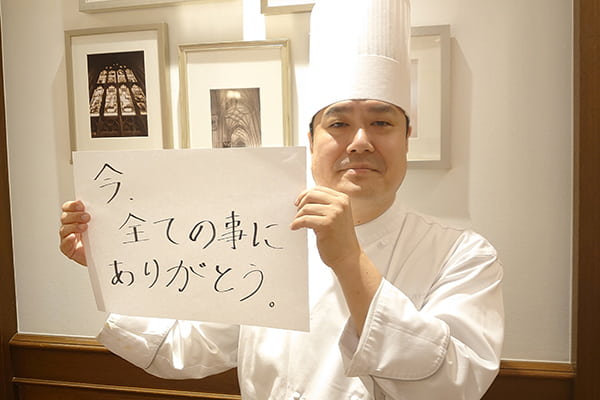 今、
全ての事に
ありがとう。